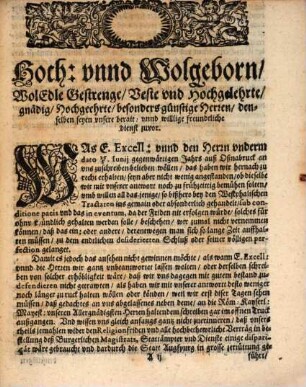 Hoch: vnnd Wolgeborn/
WolEdle Gestrenge/ Veste vnd Hochgelehrte/
gnädig/ Hochgeehrte/ besonders günstige Herren/ den-
selben seyen vnsere berait: vnnd willige freundtliche
Dienst zuvor.
WAs E. Excell: vnnd den Herrn vnderm
dato . Iunij gegenwärtigen Jahrs auß Oßnabruck an
vns zuschreiben beliebet wöllen/ das haben wir hernach zu
recht erhalten/ seyn aber nicht wenig angestanden/ ob dieselbe
wir mit vnserer antwort noch zu frühzeitig bemühen solten/
vnd willen all das jenige so bißhero bey den Westphälischen
Tractaten ins gemein oder absonderlich gehandelt/ sub con-
ditione pacis vnd das in eventum, da der Friden mit erfolgen würde/
ohne  gehalten werden solle/ beschehen/ wir zumal nicht vernemmen
können/ daß das ein; oder andere/ derenwegen man sich so lange Zeit auffhal-
ten müssen/ zu dem endtlichen desiderierten Schluß oder seiner völligen per-
fection gelanget.
Damit es jedoch das ansehen nicht gewinnen möchte/ als wann E. Excell:
vnnd die Herren wir gantz vnbeantwortet lassen wolten/ oder derselben schrei-
ben von solcher erhöbligkeit wäre/ daß wir vns dagegen mit gutem bestand zu-
defendieren nicht getrawten/ als haben wir mit vnserer antwort desto weniger
noch länger zuruck halten wöllen oder sollen/ weil wir erst diser Tagen sehen
müssen/ daß gedachtes an vns abgelassenes neben deme/ an die Röm. Kayserl:
Mayest: vnseren Allergnädigsten Herren haltenden schreiben gar im offnen Truck
außgangen. Vnd wissen vns gleich anfangs gantz nicht zuerinnern/ daß wir
jemahlen etwas wider den Religionfriden vnd alle hochbethewrliche Verträg in be-
stellung deß Burgerlichen Magistrats, Statt ämpter vnd Dienste einge
 wäre gebraucht vnd dardurch die Statt Augspurg in grosse zerrüttung ge-
führet/